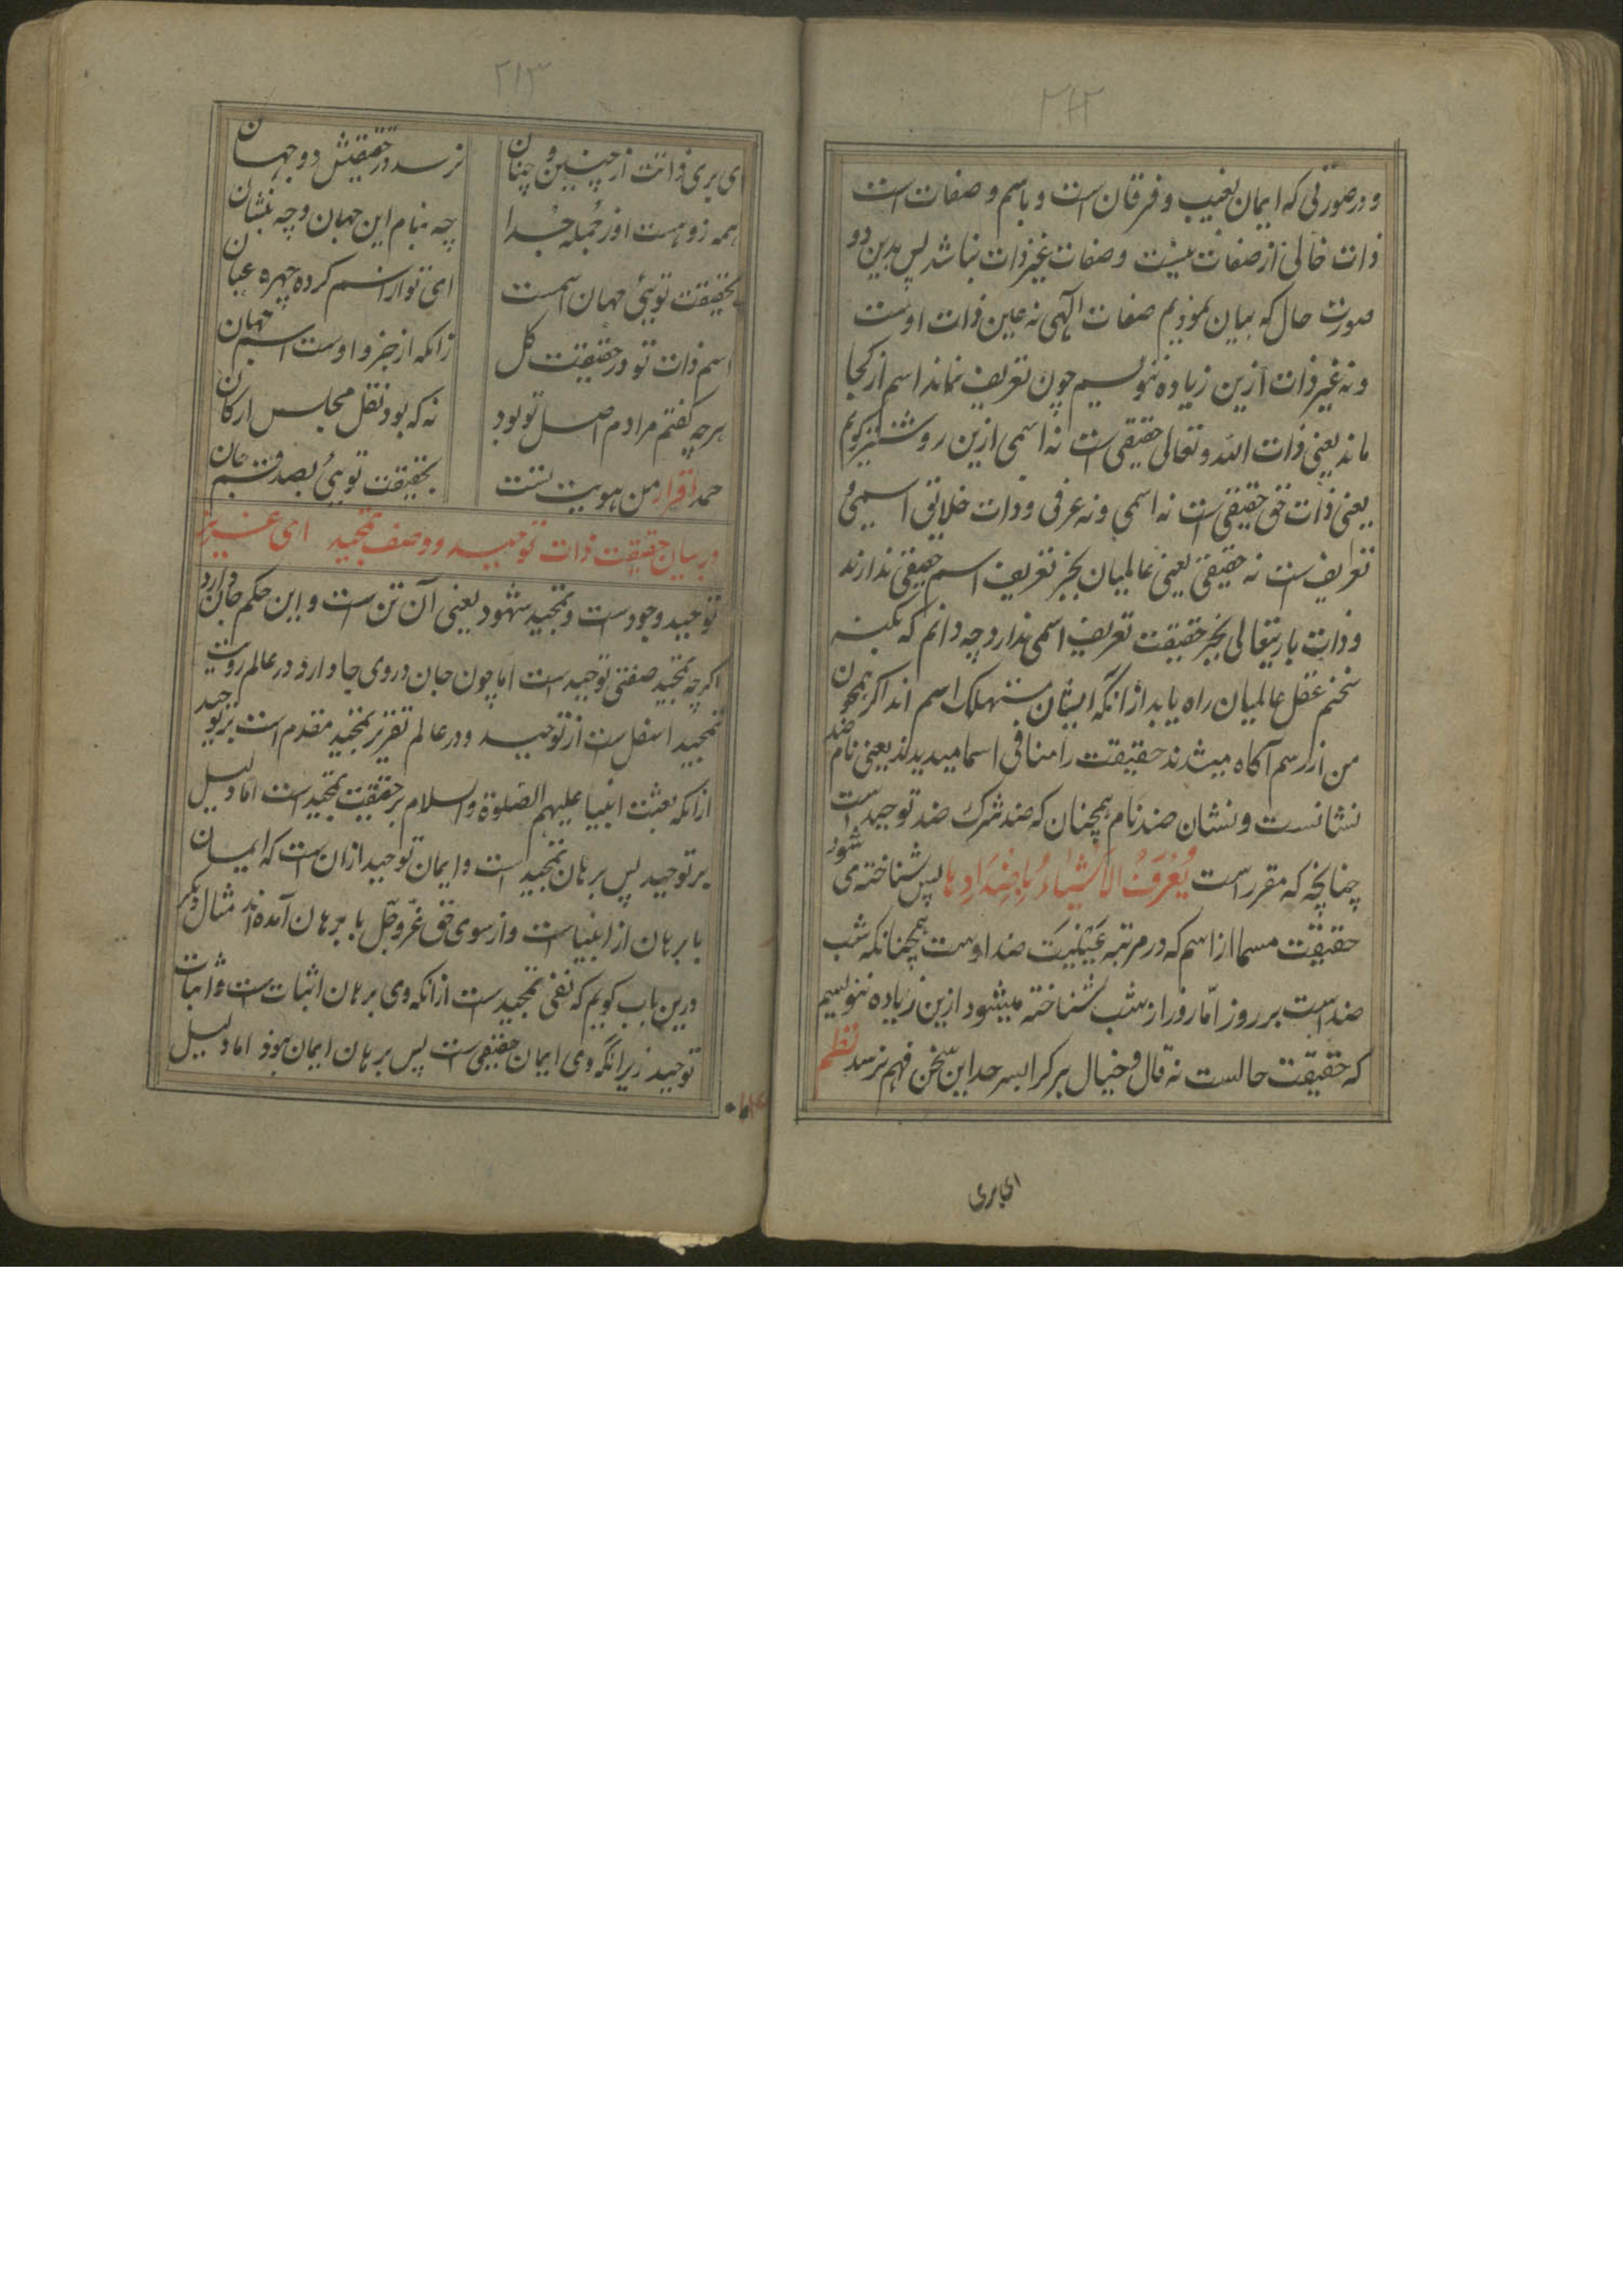 ۲۱۲
و در صورتی که ایمان بغیب و فرقان است و باسم و صفات است
ذات خالی از صفات نیست و صفات غیر ذات نباشد پس بدین دو
صورت حال که بیان نمودیم صفات الهی نه عین ذات اوست
و نه غیر ذات ازین زیاده ننویسیم چون تعریف نماند اسم از کجا
ماند یعنی ذات الله و تعالی حقیقی است نه اسمی ازین روشنتر کویم
یعنی ذات حق حقیقی است نه اسمی و نه عرفی و ذات خلائق اسمی و
تعریف است نه حقیقی یعنی عالمیان بجز تعریف اسم حقیقی ندارند
و ذات باریتعالی بجز حقیقت تعریف اسمی ندارد چه دانم که بکنه
سخنم عقل عالمیان راه یابد از انکه ایشان مستهلک اسم اند اکر همچون
من از رسم آکاه میشدند حقیقت را منافی اسما میدیدند یعنی نام ضد
نشانست و نشان ضد نام همچنان که ضد شرک ضد توحید است
چنانچه که مقرر است یُعْرَفُ الاَشْیَاءُ بِاَضْدَادِهَا پس شناخته می شود
حقیقت مسما از اسم که در مرتبه عینیت ضد اوست همچنانکه شب
ضد است بر روز امّا روز از شب شناخته میشود ازین زیاده ننویسیم
که حقیقت حالست نه قال و خیال هر کرا بسر حد این سخن فهم نرسد نظم
ای بری
۲۱۳
ای بری ذاتت از چنین و چنان نرسد در حقیقتش دو جهان
همه زو هست او ز جمله جُدا چه بنام این جهان و چه بنشان
بحقیقت توئی جهان اسمست ای تو از اسم کرده چهره عیان
اسم ذات تو در حقیقت کل زانکه از جزو اوست اسم جهان
هرچه کفتم مرادم اصل تو بود نه که بود نقل مجلس ارکان
حمد اقرار من هویت تست بحقیقت توئی بصد قسم جان
در بیان حقیقت ذات توحید و وصف تمجید ای عزیز
توحید وجود است و تمجید شهود یعنی آن تن است و این حکم جان دارد
اکرچه تمجید صفتی توحید است اما چون جان در وی جا دارد در عالم رویت
تمجید اسفل است از توحید و در عالم تقریر تمجید مقدم است بر توحید
از انکه بعثت انبیا علیهم الصلوة والسلام بر حقیقت تمجید است اما دلیل
بر توحید پس برهان تمجید است و ایمان توحید از ان است که ایمان
با برهان از انبیاست و از سوی حق عزّ وجلّ با برهان آمده اند مثال دیکر
درین باب کویم که نفی تمجید است از انکه وی برهان اثبات است و اثبات
توحید زیرانکه وی ایمان حقیقی است پس برهان ایمان هوذ اما دلیل